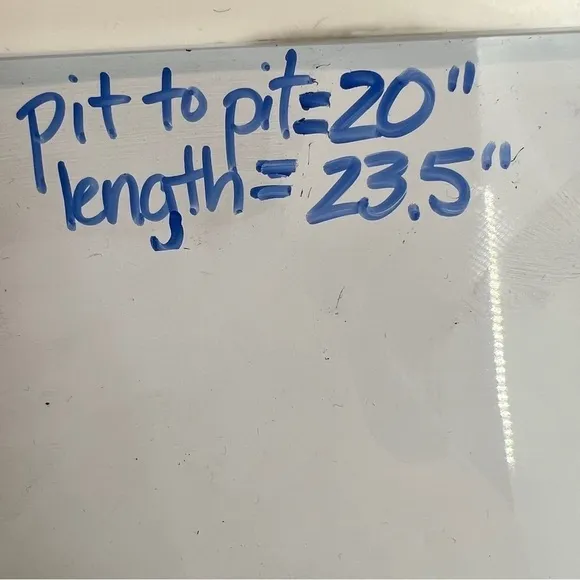 pit to pit=20"
length= 23.5"